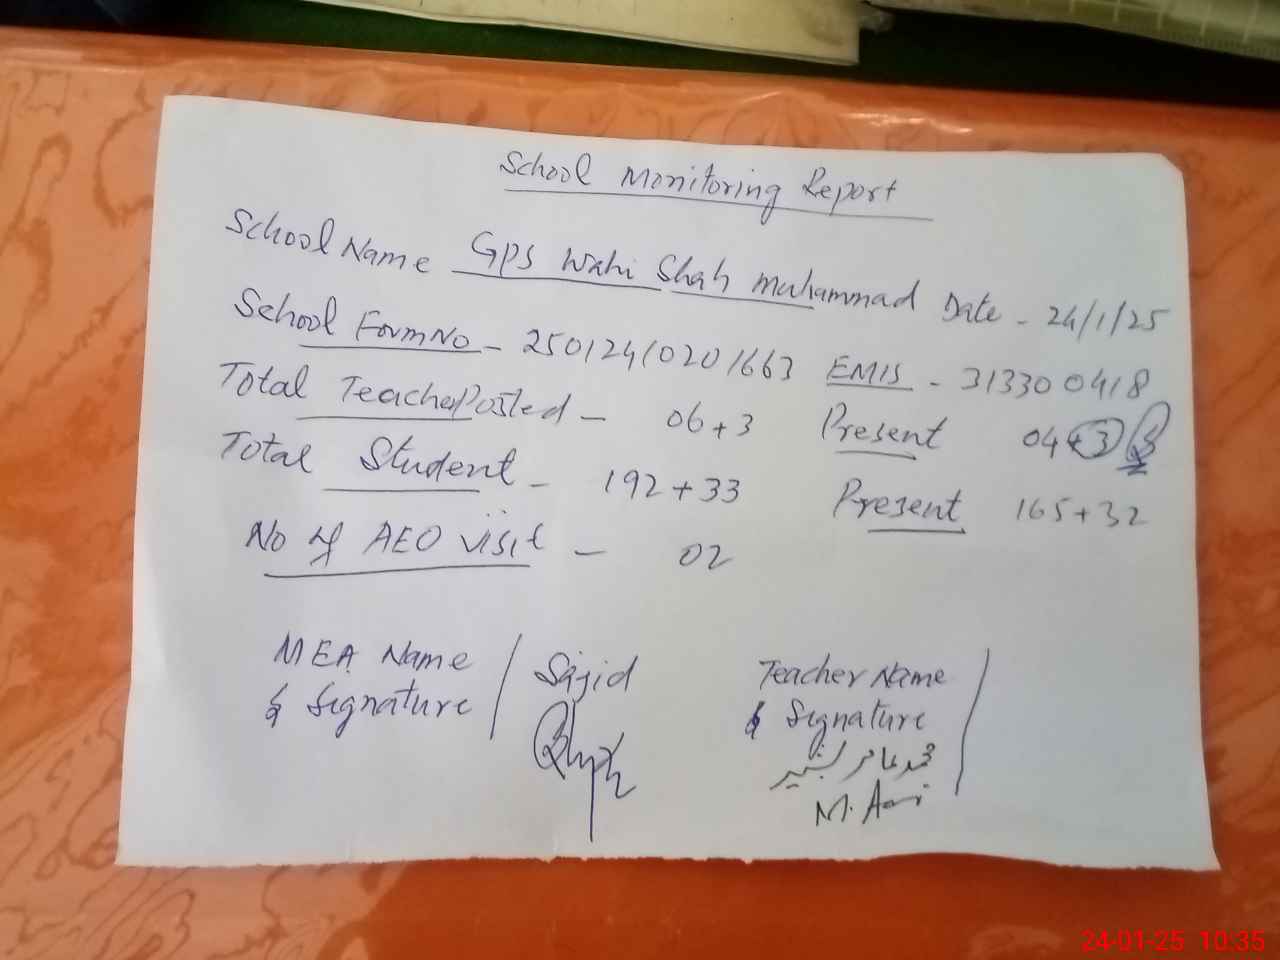 School Monitoring Report
School Name GPS Wahi Shah Muhammad Date - 24/1/25
School Form No - 250124/0201663 EMIS - 313300418
Total Teacher Posted - 06+3 Present 04+3
Total Student - 192+33 Present 165+32
No of AEO visit - 02
MEA Name Sajid Teacher Name
& Signature & Signature
محمد عامر
M.
24-01-25 10:35